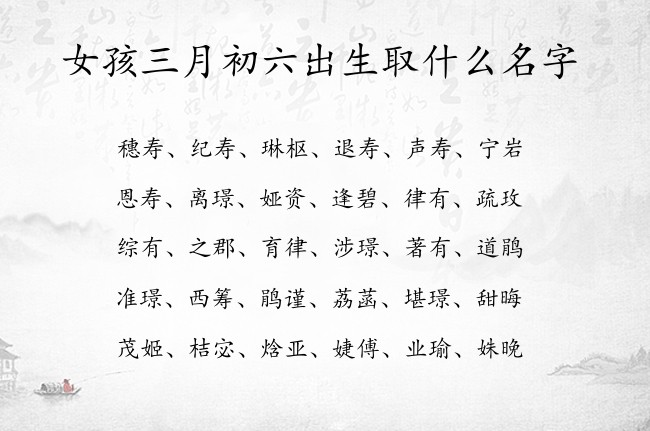 女孩三月初六出生取什么名字
穗寿、纪寿、琳枢、退寿、声寿、宁岩
恩寿、离璟、娅资、逢碧、律有、疏玫
综有、之郡、育律、涉璟、著有、道鹃
准璟、西筹、鹃谨、荔菡、堪璟、甜晦
茂姬、桔宓、焓亚、婕傅、业瑜、姝晚